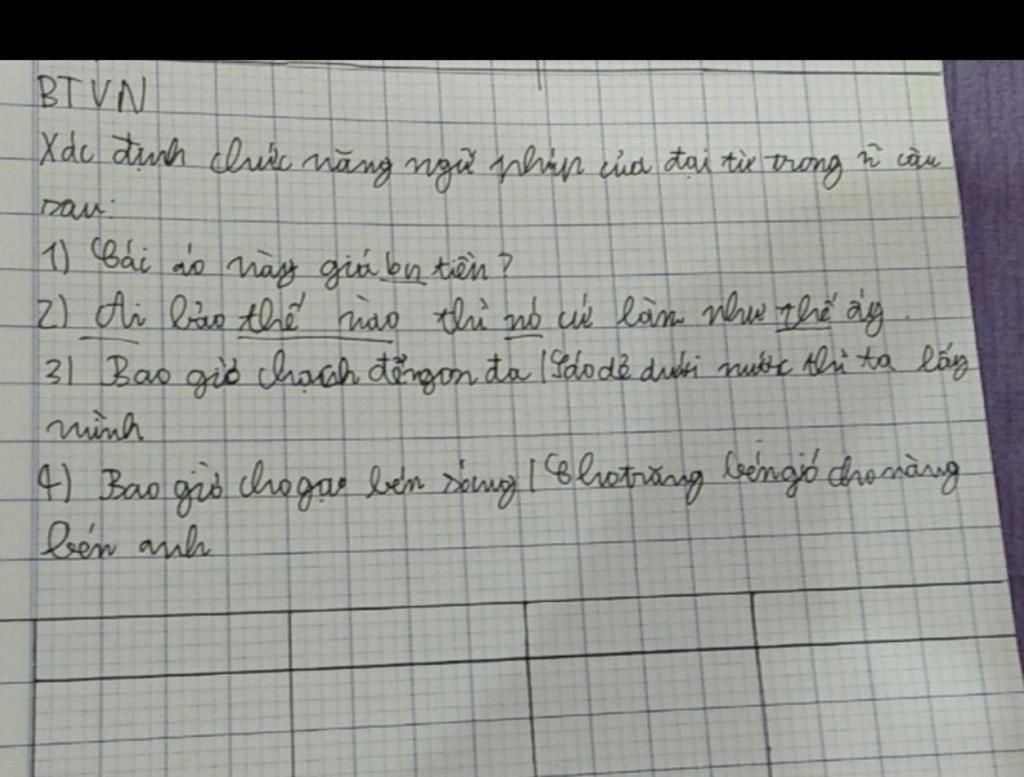 BTVN
Xác định chức năng ngữ pháp của đại từ trong n~ câu
sau:
1) Cái áo này giá bn tiền?
2) Ai bảo thế nào thì nó cứ làm như thế ấy.
3) Bao giờ chạch đẻ ngọn đa / Sáo đẻ dưới nước thì ta lấy
mình
4) Bao giờ cho gạo bén sàng / Cho trăng bén gió cho nàng
bén anh